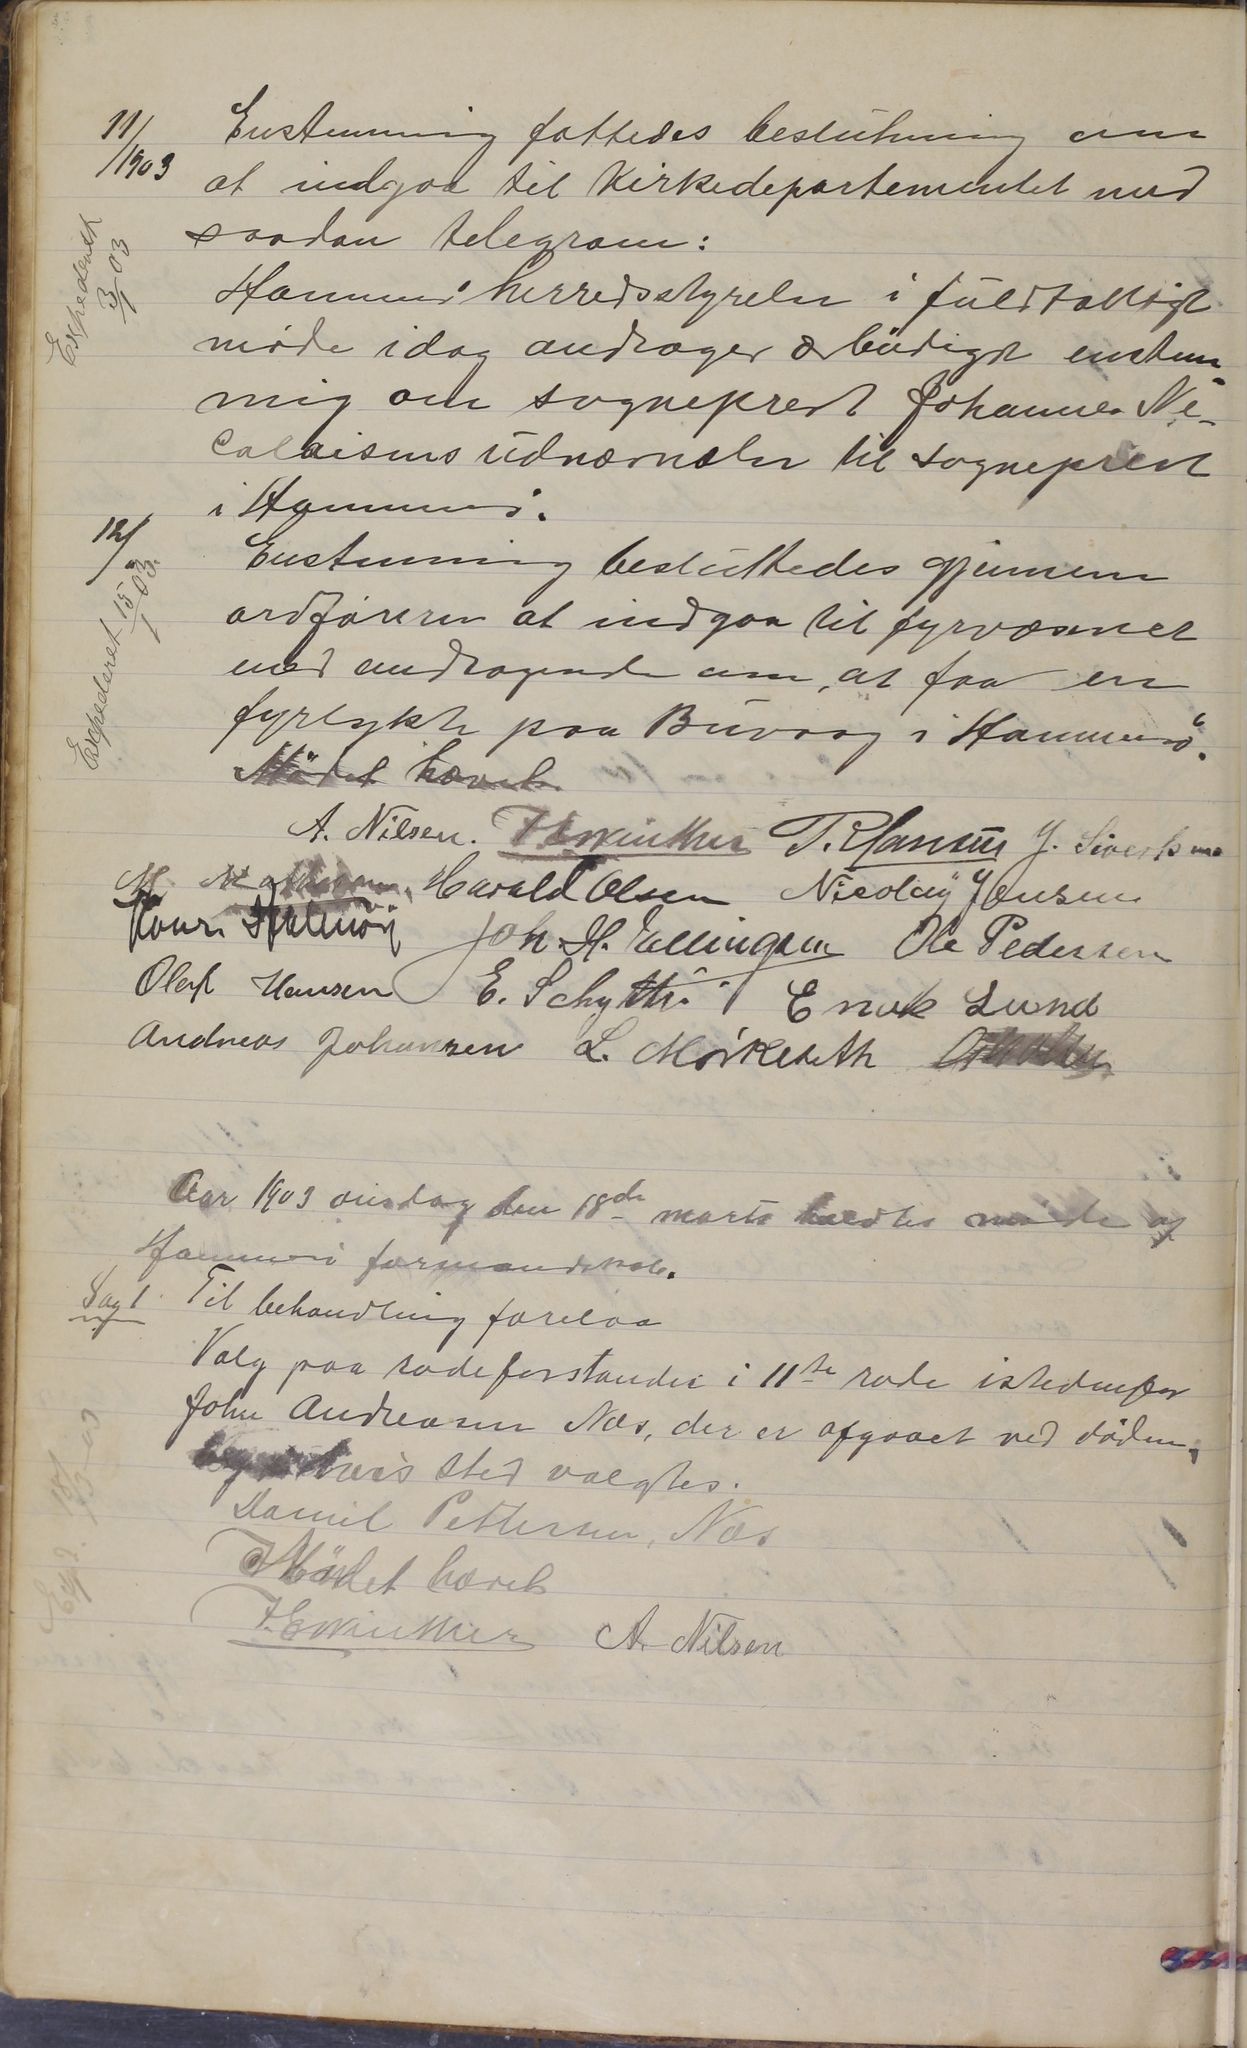 11/1903 Enstemmig fattedes beslutning om
at indgaa til Kirkedepartementet med
saadan telegram:
Expederedt 3/1 03
Hammerø herredsstyrelse i fuldtalligt
møde idag andrager ærbødigst enstem-
mig om sogneprest Johannes Ni-
colaisens udnævnelse til sogneprest
i Hammerø.
12/ Enstemmig besluttedes gjennem
Expederet 15/1 03.
ordføreren at indgaa til fyrvæsenet
med andragende om, at faa en
fyrlykte paa Buvaag i Hammerø.
Mødet hævet
A. Nilsen. F. E. Winther T. Hansen J. Sivertsen
M. Harald Olsen Nicolay Jensen
Joh. H. Ellingsen Ole Pedersen
Olaf Hansen E. Schytte Enok Lund
Andreas Johansen L. Mørkeseth
Aar 1903 onsdag den 18de marts holdtes møde af
Hammerø formandskab.
Sag 1 Til behandling forelaa
Valg paa rodeforstander i 11te rode istedenfor
John Andreasen Næs, der er afgaaet ved døden,
hvis sted valgtes.
Exp. 18/3 03
Daniel Pettersen, Næs
Mødet hævet
F. E. Winther A. Nilsen